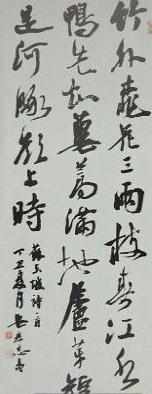 竹外桃花三兩枝春江水
鴨先知蔞蒿滿地蘆芽短
是河豚欲上時
蘇東坡詩一首
夏月